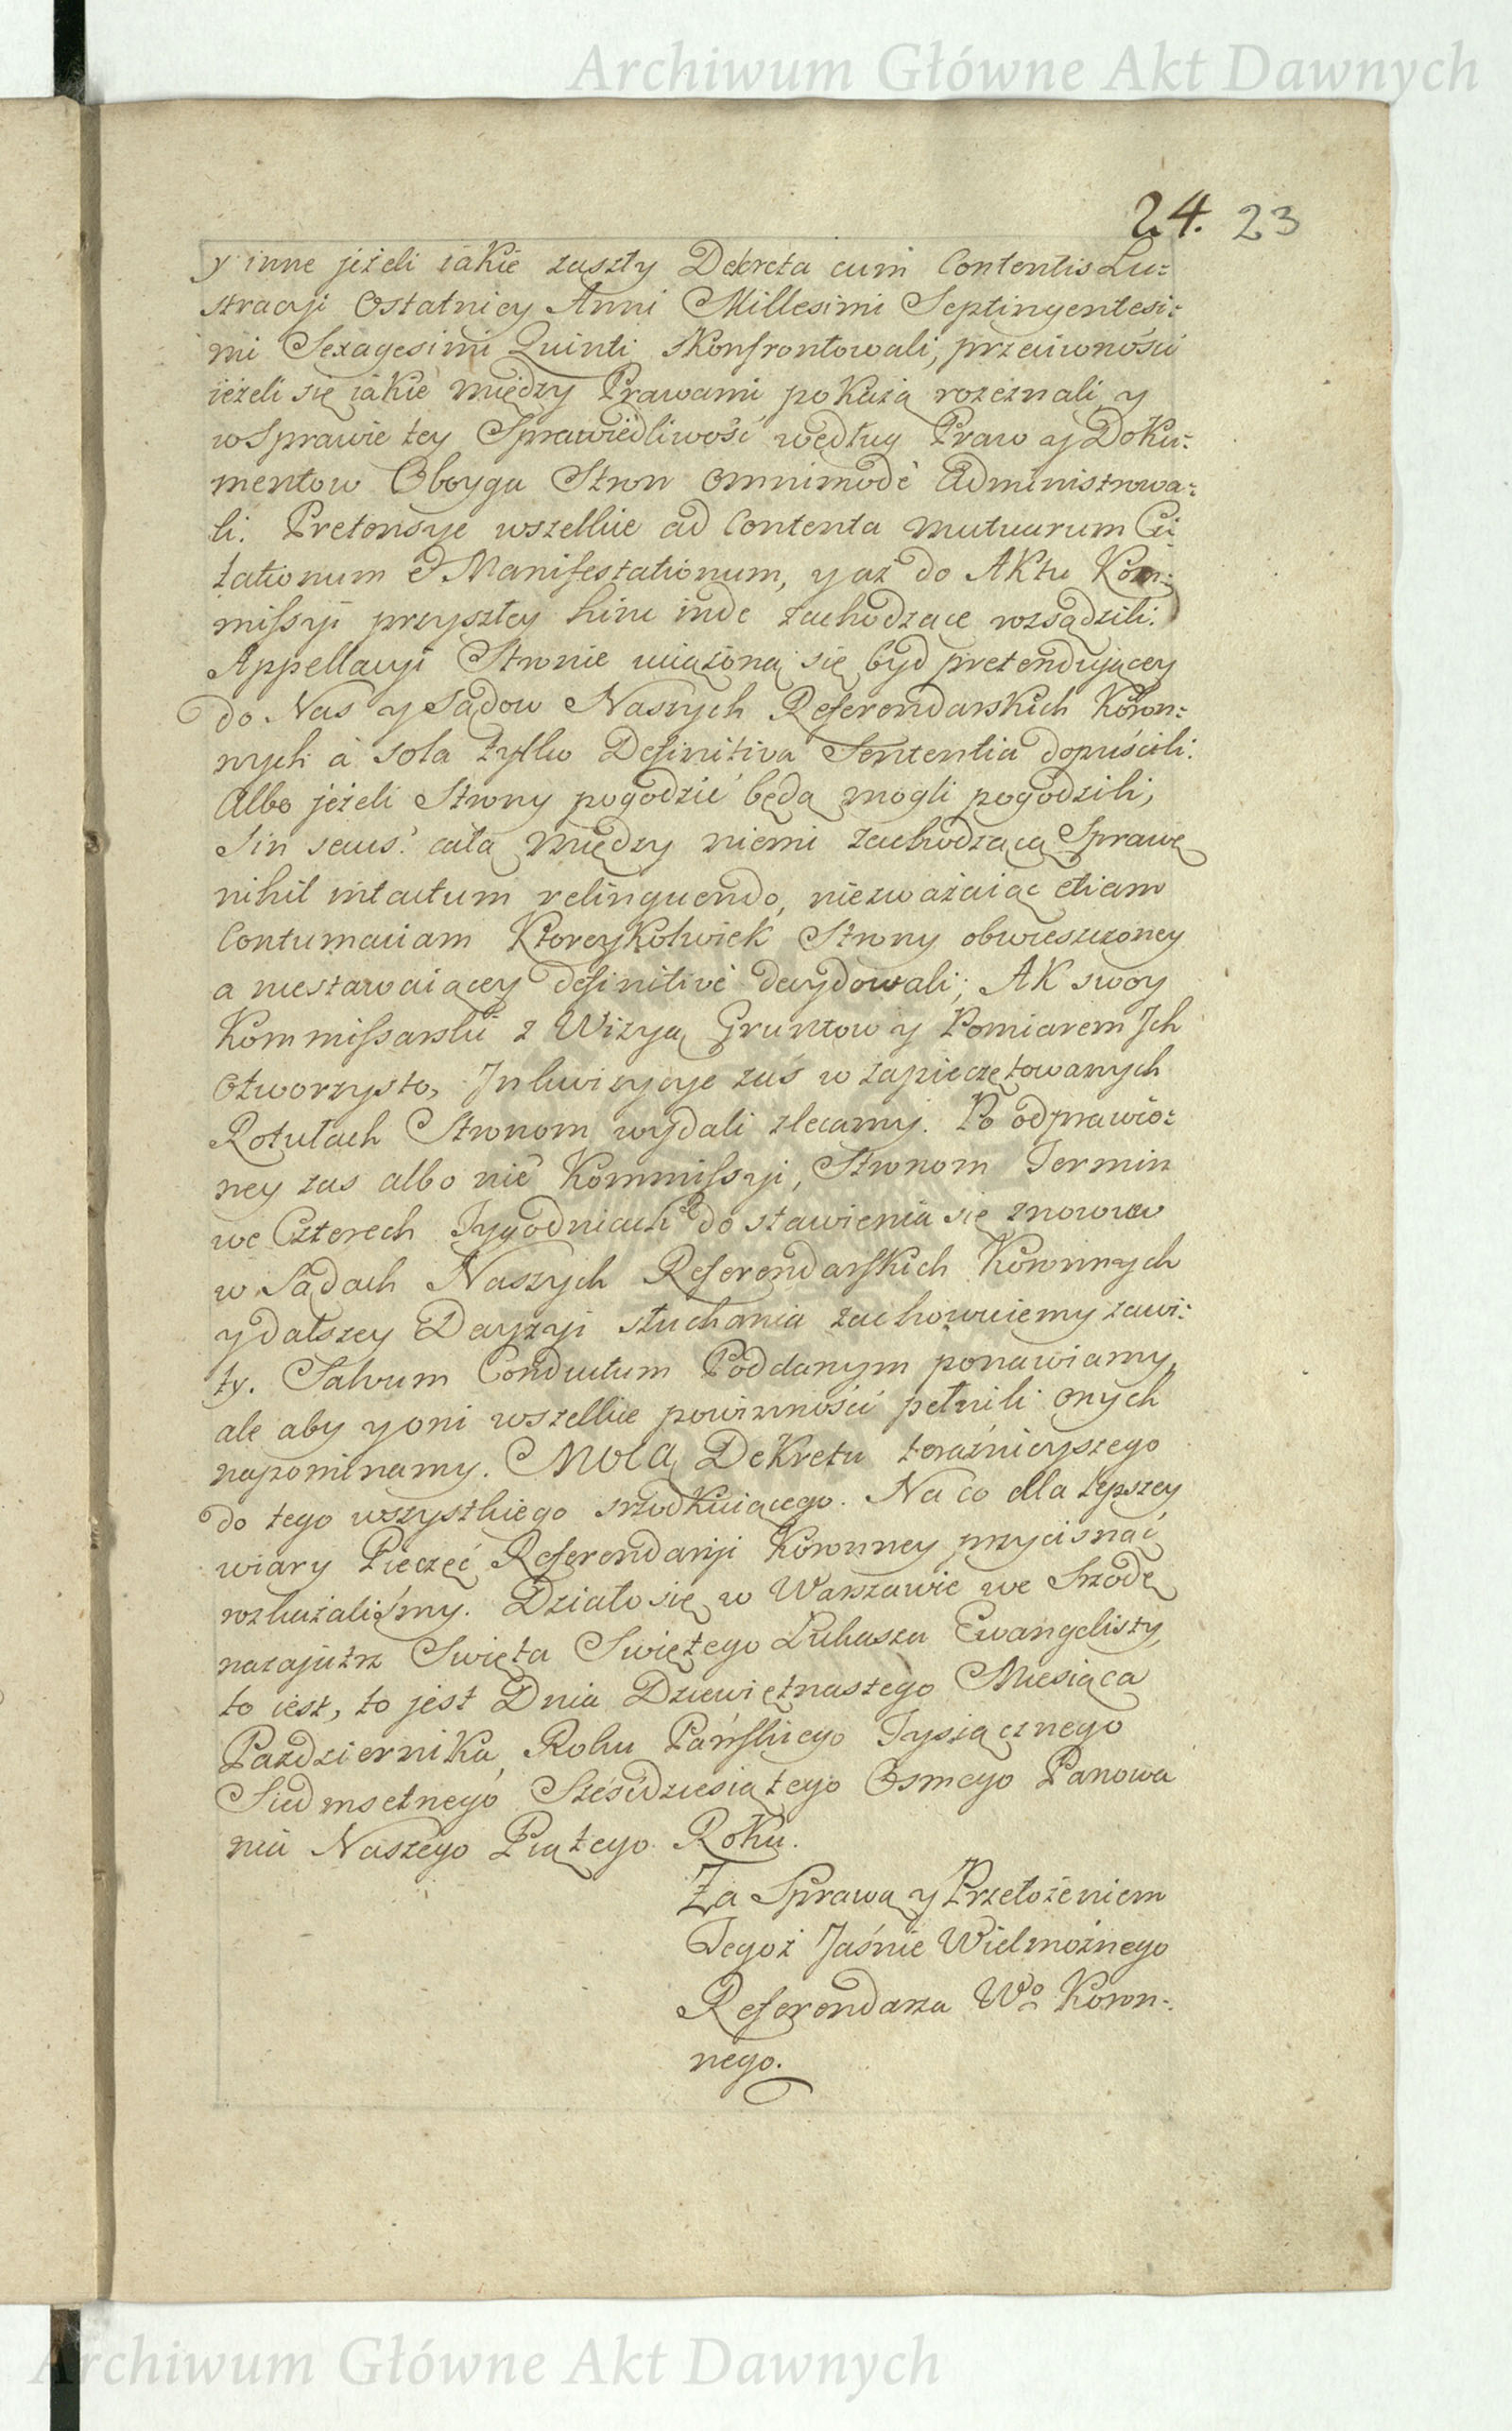 Archiwum Główne Akt Dawnych
24. 23
y inne jeżeli iakie zaszły Dekreta cum Contentis Lu:
stracyi Ostatniey Anni Millesimi Septingentesi:
mi Sexagesimi Quinti skonfrontowali, przeciwności
ieżeli się iakie między Prawami pokażą rozeznali y
w Sprawie tey Sprawiedliwość według Praw y Doku:
mentow Oboyga Stron omnimodè Administrowa:
li. Pretensye wszelkie ad Contenta mutuarum Ci
tationum et Manifestationum, y aż do Aktu Kom:
missyi przyszłey hinc inde zachodzące rozsądzili.
Appellacyi Stronie uciążoną się byd pretendującey
do Nas y Sądow Naszych Referendarskich Koron:
nych à sola tylko Definitiva Sententia dopuścili.
Albo jeżeli Strony pogodzić będą mogli pogodzili,
Sin secus: całą między niemi zachodzącą Sprawę
nihil intactum relinquendo, niezważaiąc etiam
Contumaciam Ktoreykolwiek Strony obwieszczoney
a niestawaiącey definitivè decydowali; Akt swoy
Kommissarski z Wizyą Gruntow y Pomiarem Ich
otworzysto, Inkwizycye zaś w zapieczętowanych
Rotułach Stronom wydali zlecamy. Po odprawio:
ney zas albo nie Kommissyi, Stronom Termin
we Czterech Tygodniach do stawienia się znowu
w Sądach Naszych Referendarskich Koronnych
y dalszey Decyzyi słuchania zachowuiemy zawi:
ty. Salvum Conductum Poddanym ponawiamy,
ale aby y oni wszelkie powinności pełnili onych
napominamy. Mocą Dekretu teraźnieyszego
do tego wszystkiego srzodkuiącego. Na co dla lepszey
wiary Pieczęć Referendaryi Koronney przycisnąć
rozkazaliśmy. Działo się w Warszawie we Srzodę
nazajutrz Swięta Swiętego Łukasza Ewangelisty,
to iest, to jest Dnia Dziewiętnastego Miesiąca
Pazdziernika, Roku Pańskiego Tysiącznego
Siedmsetnego Sześćdziesiątego Osmego Panowa
nia Naszego Piątego Roku.
Za Sprawą y Przełożeniem
Tegoż Jaśnie Wielmożnego
Referendarza Wo Koron:
nego.
Archiwum Główne Akt Dawnych